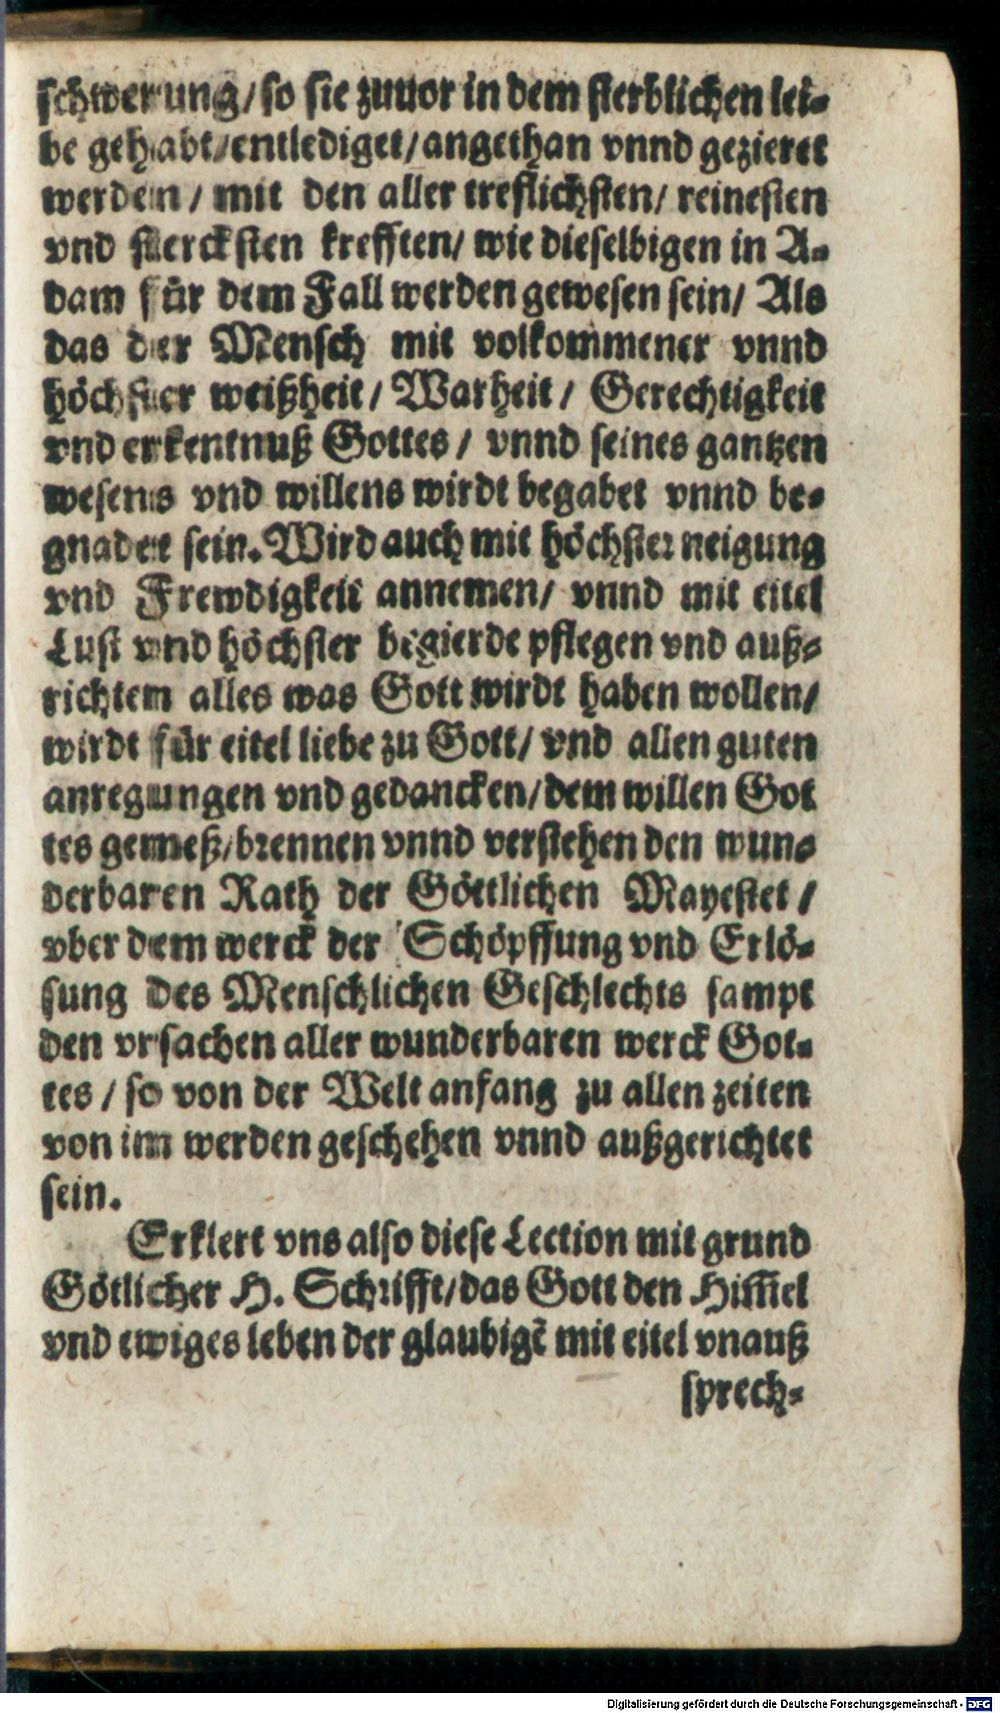 schwerung/ so sie zuuor in dem sterblichen lei-
be gehabt/ entlediget/ angethan vnnd gezieret
werden / mit den aller treflichsten/ reinesten
vnd stercksten krefften/ wie dieselbigen in A-
dam für dem Fall werden gewesen sein/ Als
das der Mensch mit volkommener vnnd
höchster weißheit/ Warheit / Gerechtigkeit
vnd erkentnuß Gottes / vnnd seines gantzen
wesens vnd willens wirdt begabet vnnd be-
gnadet sein. Wird auch mit höchster neigung
vnd Frewdigkeit annemen/ vnnd mit eitel
Lust vnd höchster begierde pflegen vnd auß-
richten alles was Gott wirdt haben wollen/
wirdt für eitel liebe zu Gott/ vnd allen guten
anregungen vnd gedancken/ dem willen Got
tes gemeß/ brennen vnnd verstehen den wun-
derbaren Rath der Göttlichen Mayestet /
vber dem werck der Schöpffung vnd Erlö-
sung des Menschlichen Geschlechts sampt
den vrsachen aller wunderbaren werck Got-
tes / so von der Welt anfang zu allen zeiten
von im werden geschehen vnnd außgerichtet
sein.
Erklert vns also diese Lection mit grund
Götlicher H. Schrifft/ das Gott den Him̃el
vnd ewiges leben der glaubigẽ mit eitel vnauß
sprech-
Digitalisierung gefördert durch die Deutsche Forschungsgemeinschaft - DFG